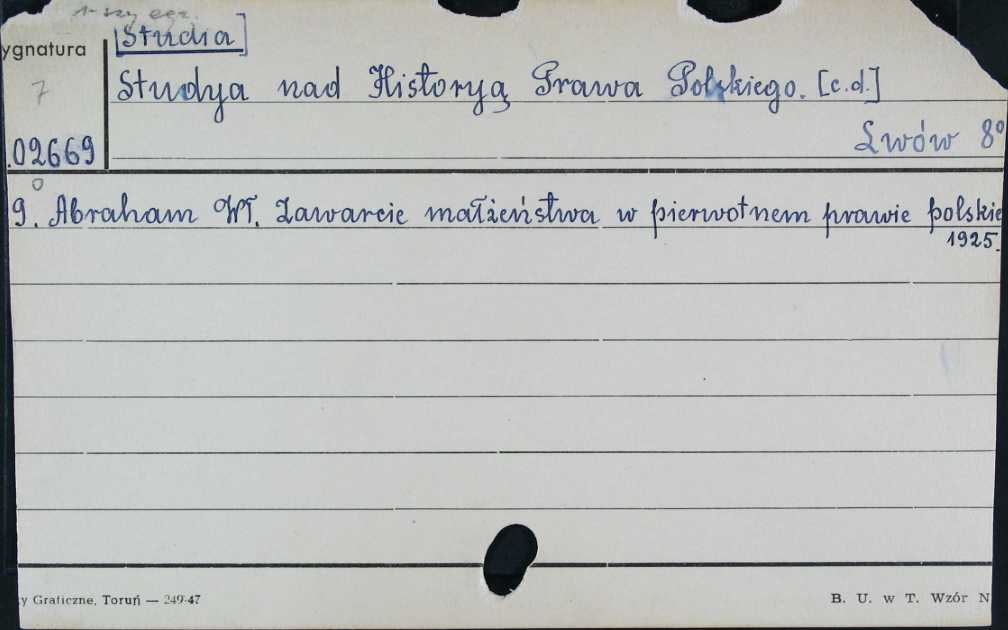 1-szy egz.
[Studia]
ygnatura
Studya nad Historyą Prawa Polskiego. [c.d.]
7
Lwów 8º
02669
9. Abraham Wł. Zawarcie małżeństwa w pierwotnem prawie polskie
1925.
y Graficzne, Toruń — 249-47
B. U. w T. Wzór N